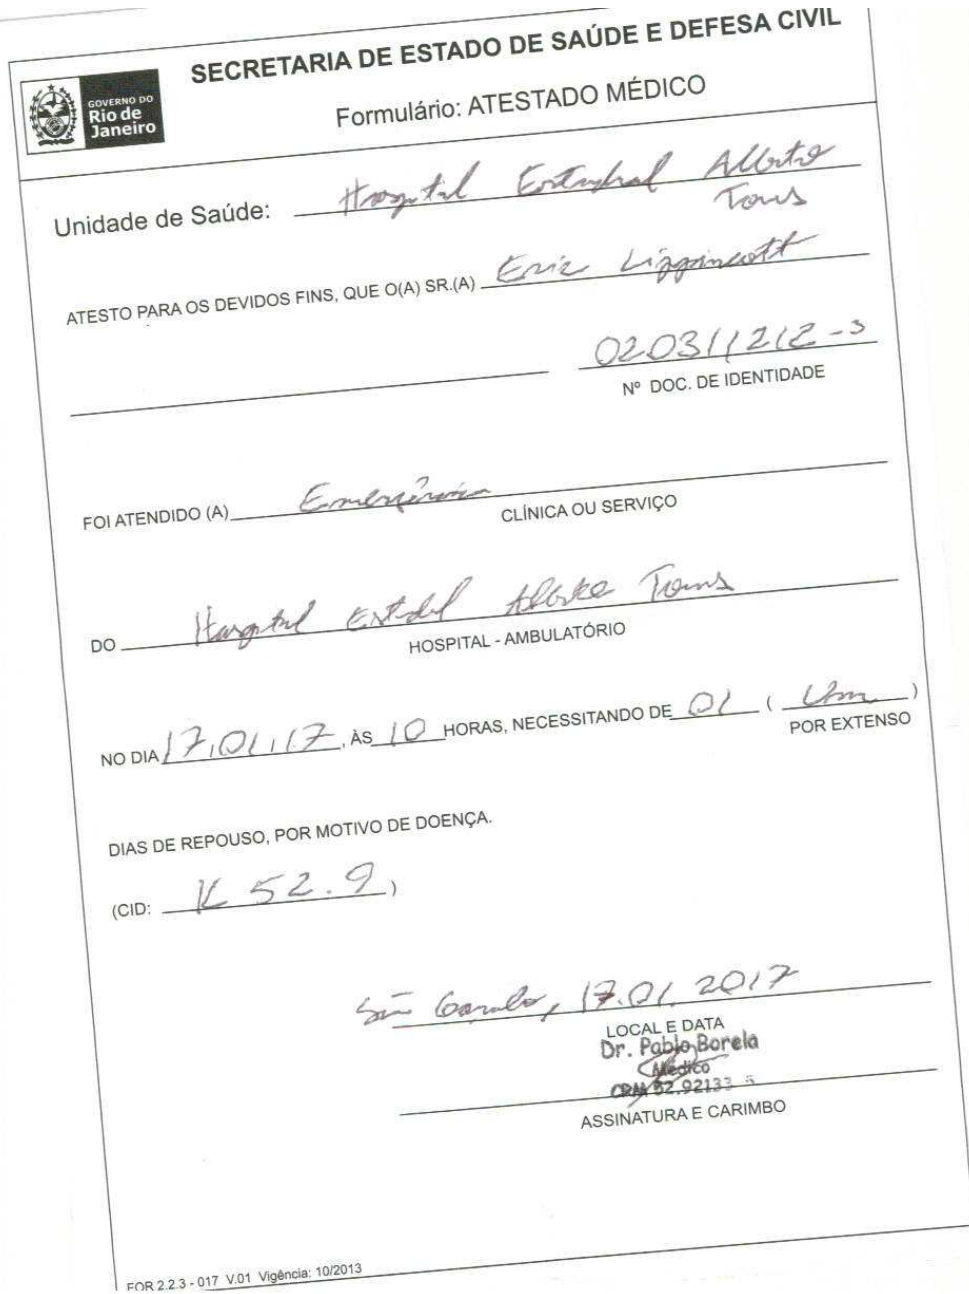 SECRETARIA DE ESTADO DE SAÚDE E DEFESA CIVIL
GOVERNO DO
Rio de
Janeiro
Formulário: ATESTADO MÉDICO
Unidade de Saúde: Hospital Estadual Alberto
Torres
ATESTO PARA OS DEVIDOS FINS, QUE O(A) SR.(A) Eric Lippincott
020311212-3
Nº DOC. DE IDENTIDADE
FOI ATENDIDO (A) Emergência
CLÍNICA OU SERVIÇO
DO Hospital Estadual Alberto Torres
HOSPITAL - AMBULATÓRIO
NO DIA 17,01,17, ÀS 10 HORAS, NECESSITANDO DE 01 ( Um )
POR EXTENSO
DIAS DE REPOUSO, POR MOTIVO DE DOENÇA.
(CID: K 52.9)
São Gonçalo, 17.01.2017
LOCAL E DATA
Dr. Pablo Borela
Médico
CRM 52.92133-5
ASSINATURA E CARIMBO
FOR 2.2.3 - 017 V.01 Vigência: 10/2013